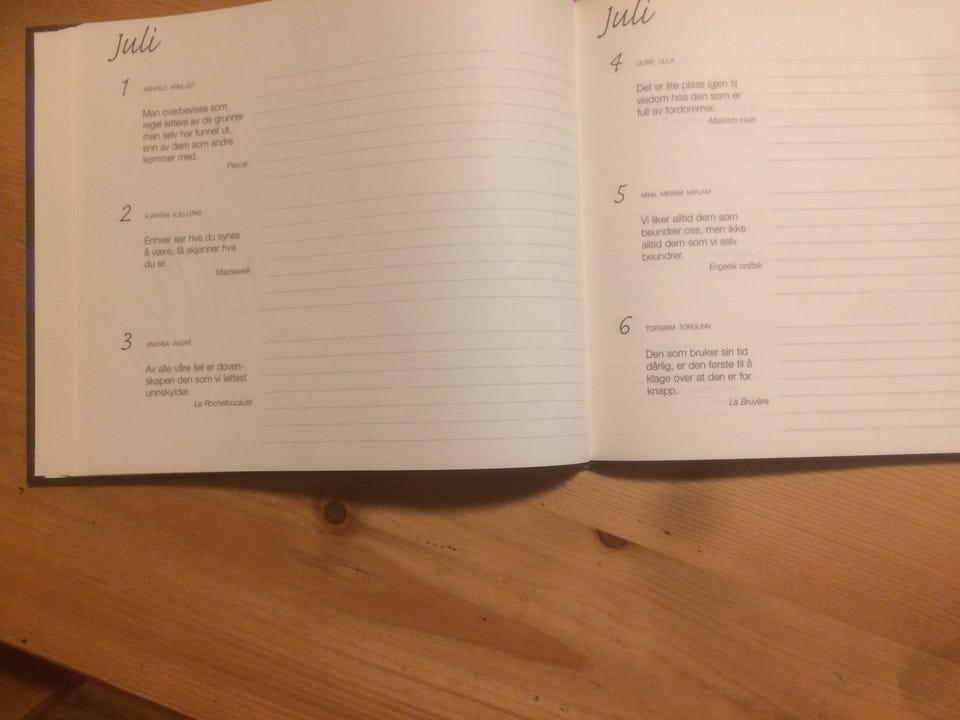 Juli
1 ARNHILD ARNLJOT
Man overbevises som
regel lettere av de grunner
man selv har funnet ut,
enn av dem som andre
kommer med.
Pascal
2 KJARTAN KJELLFRID
Enhver ser hva du synes
å være, få skjønner hva
du er.
Machiavelli
3 ANDREA ANDRÉ
Av alle våre feil er doven-
skapen den som vi lettest
unnskylder.
La Rochefoucauld
Juli
4 ULRIK ULLA
Det er lite plass igjen til
visdom hos den som er
full av fordommer.
Malcom Hein
5 MINA MIRIAM MIRJAM
Vi liker alltid dem som
beundrer oss, men ikke
alltid dem som vi selv
beundrer.
Engelsk ordtak
6 TORGRIM TORGUNN
Den som bruker sin tid
dårlig, er den første til å
klage over at den er for
knapp.
La Bruyère